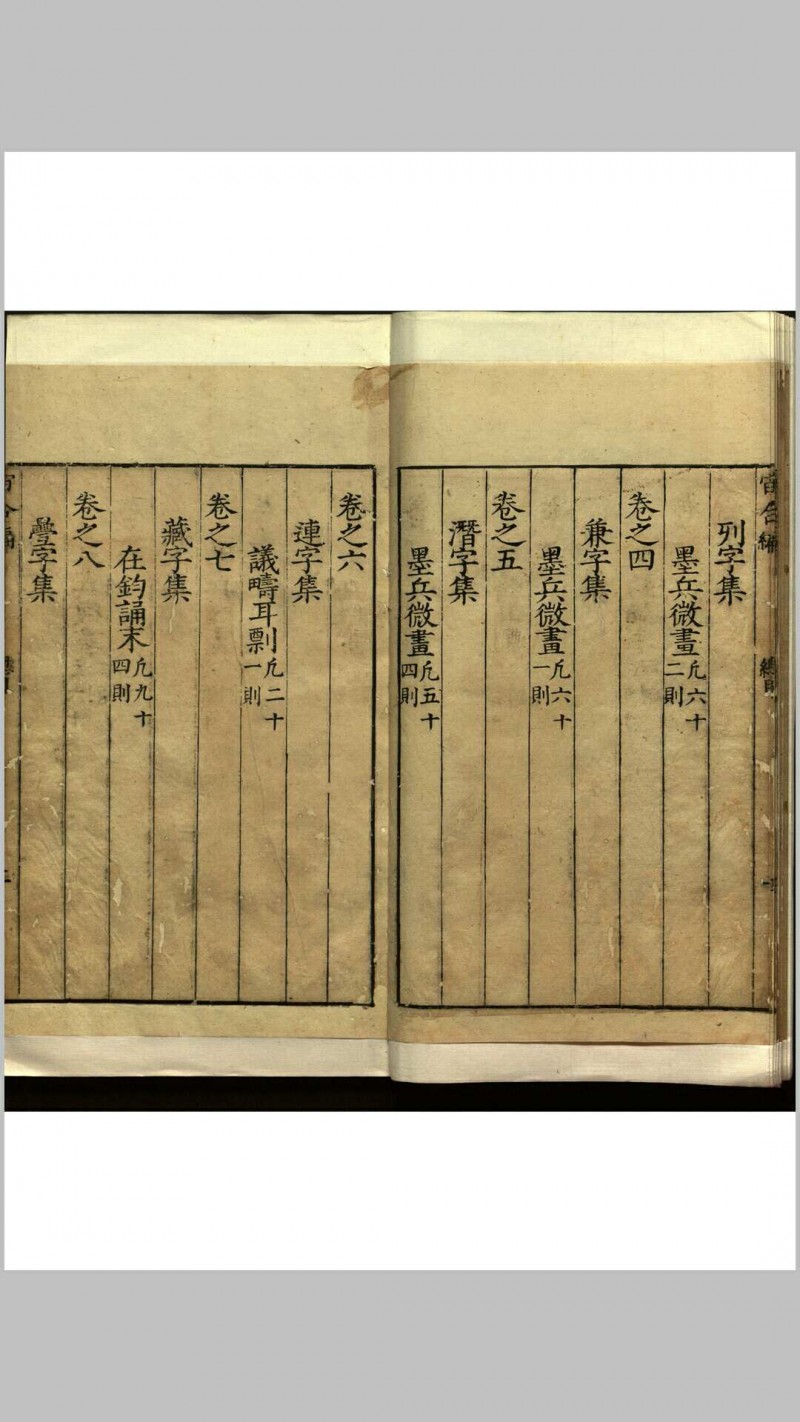 宙合編 總目
列字集
墨兵微畫 凡六十二則
卷之四
兼字集
墨兵微畫 凡六十一則
卷之五
潛字集
墨兵微畫 凡五十四則
卷之六
連字集
議疇耳剽 凡二十一則
卷之七
藏字集
在鈞誦末 凡九十四則
卷之八
疊字集